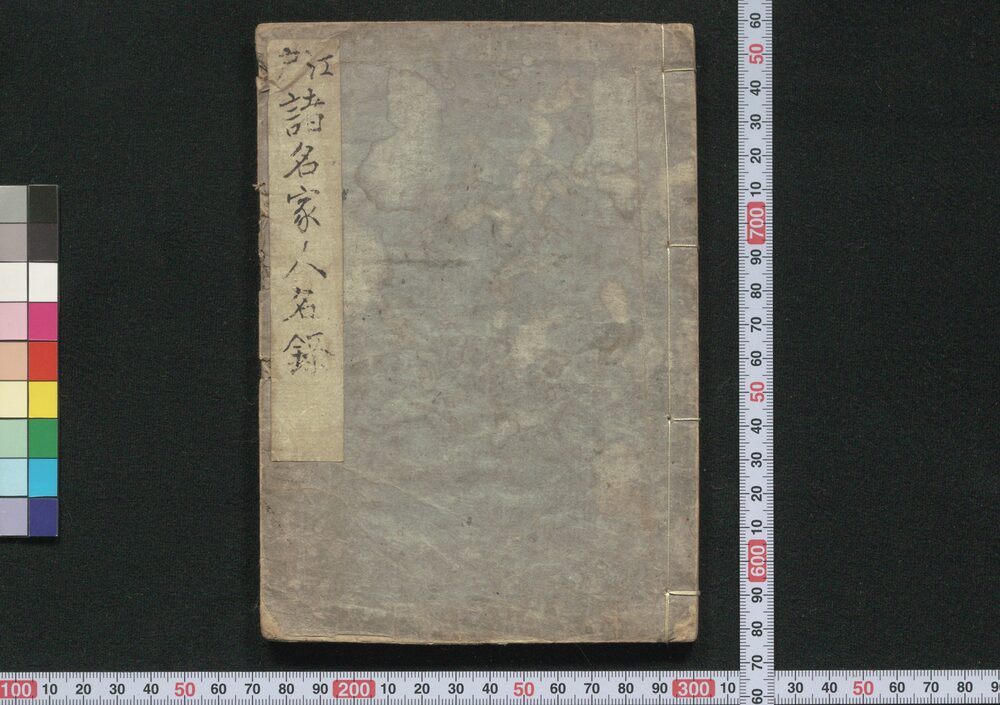 江戸
諸名家人名録
60
50
40
30
20
10
700
90
80
70
60
50
40
30
20
10
600
90
80
70
60
100 10 20 30 40 50 60 70 80 90 200 10 20 30 40 50 60 70 80 90 300 10 30 40 50 60 70 80 9